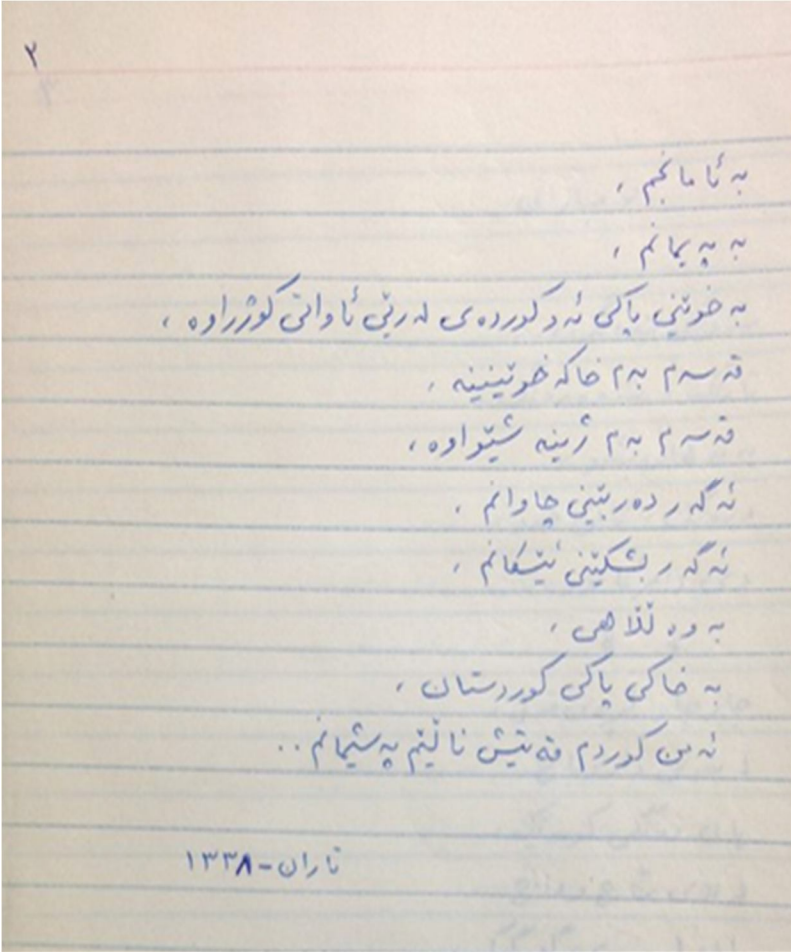 ٣
به ئامانجم ،
به په‌یمانم ،
به خوێنی پاکی ئه‌و کورده‌ی له‌ڕێی ئاواتی کوژراوه ،
قه‌سه‌م به‌م خاکه خوێنینه ،
قه‌سه‌م به‌م ژینه شێواوه ،
ئه‌گه‌ر ده‌ربێنی چاوانم ،
ئه‌گه‌ر بشکێنی ئێسکانم ،
به وه‌ڵڵاهی ،
به خاکی پاکی کوردستان ،
ئه‌من کوردم قه‌تیش ناڵێم په‌شیمانم ..
تاران - ١٣٣٨